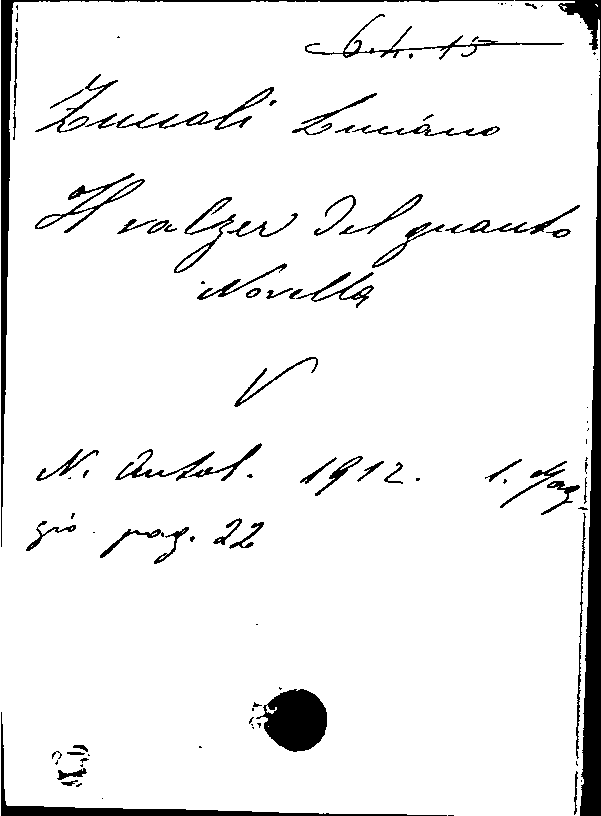 6.4.15
Zuccoli Luciano
Il valzer del guanto
Novella
V
N. Antol. 1912. 1. Mag-
gio pag. 22